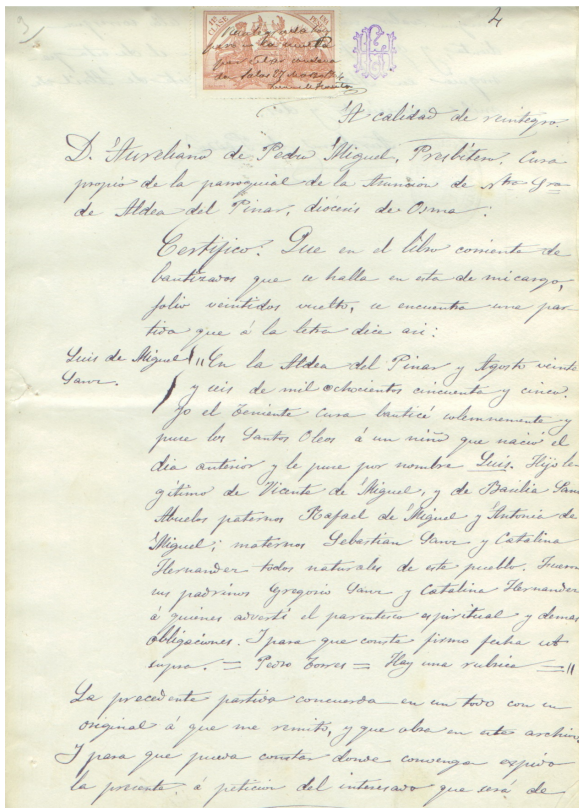 2
A calidad de reintegro.
D. Aureliano de Pedro Miguel, Presbitero, Cura
propio de la parroquial de la Asuncion de Ntra Sra
de Aldea del Pinar, diócesis de Osma.
Certifico: Que en el libro corriente de
bautizados que se halla en esta de mi cargo,
folio veintidos vuelto, se encuentra una par
tida que á la letra dice asi:
Luis de Miguel
Sanz.
"En la Aldea del Pinar y Agosto veinte
y seis de mil ochocientos cincuenta y cinco.
Yo el Teniente Cura bauticé solemnemente y
puse los Santos Oleos á un niño que nació el
dia anterior y le puse por nombre Luis. Hijo le
gitimo de Vicente de Miguel, y de Basilia Sanz
Abuelos paternos Rafael de Miguel y Antonia de
Miguel; maternos Sebastian Sanz y Catalina
Hernandez todos naturales de este pueblo. Fueron
sus padrinos Gregorio Sanz y Catalina Hernandez
á quienes advertí el parentesco espiritual y demas
obligaciones. Y para que conste firmo fecha ut
supra. = Pedro Torres = Hay una rubrica ="
La precedente partida concuerda en un todo con su
original á que me remito, y que obra en este archivo
Y para que pueda constar donde convenga espido
la presente, á peticion del interesado que será de